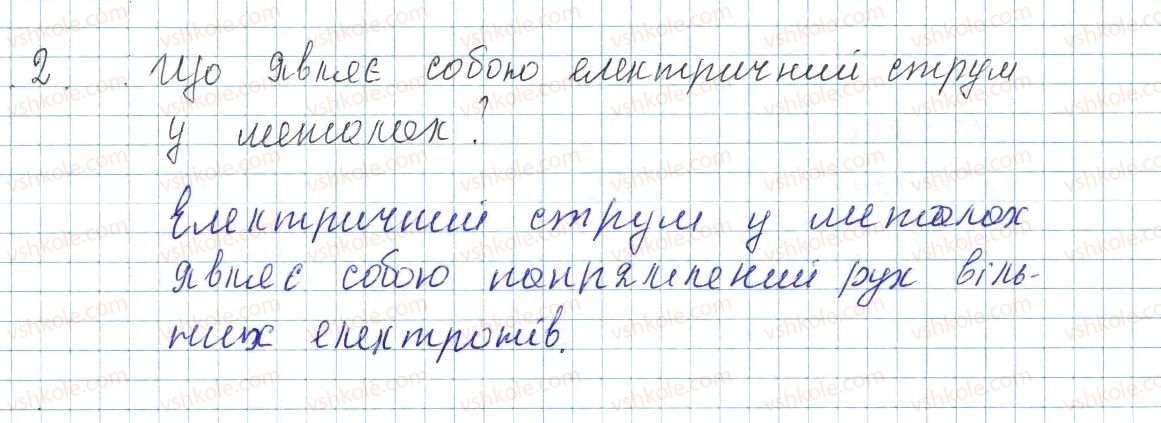 2. Що являє собою електричний струм
у металах?
Електричний струм у металах
являє собою напрямлений рух віль-
них електронів.